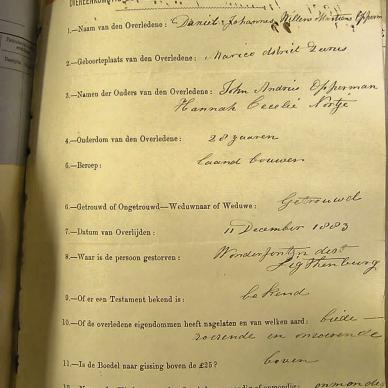 1.—Naam van den Overledene: Daniel Johannes Willem Martins Opperm
2.—Geboorteplaats van den Overledene: Marico distrikt Zeerus
3.—Namen der Ouders van den Overledene: John Andries Opperman
Hannah Cecelie Nortje
4.—Ouderdom van den Overledene: 28 yaaren
5.—Beroep: laand bouwen
6.—Getrouwd of Ongetrouwd—Weduwnaar of Weduwe: Getrouwd
7.—Datum van Overlijden: 11 December 1883
8.—Waar is de persoon gestorven: Wonderfontyn dest
Ligthenburg
9.—Of er een Testament bekend is: bekend
10.—Of de overledene eigendommen heeft nagelaten en van welken aard: biede—
roerende en onroerende
11.—Is de Boedel naar gissing boven de £25? boven